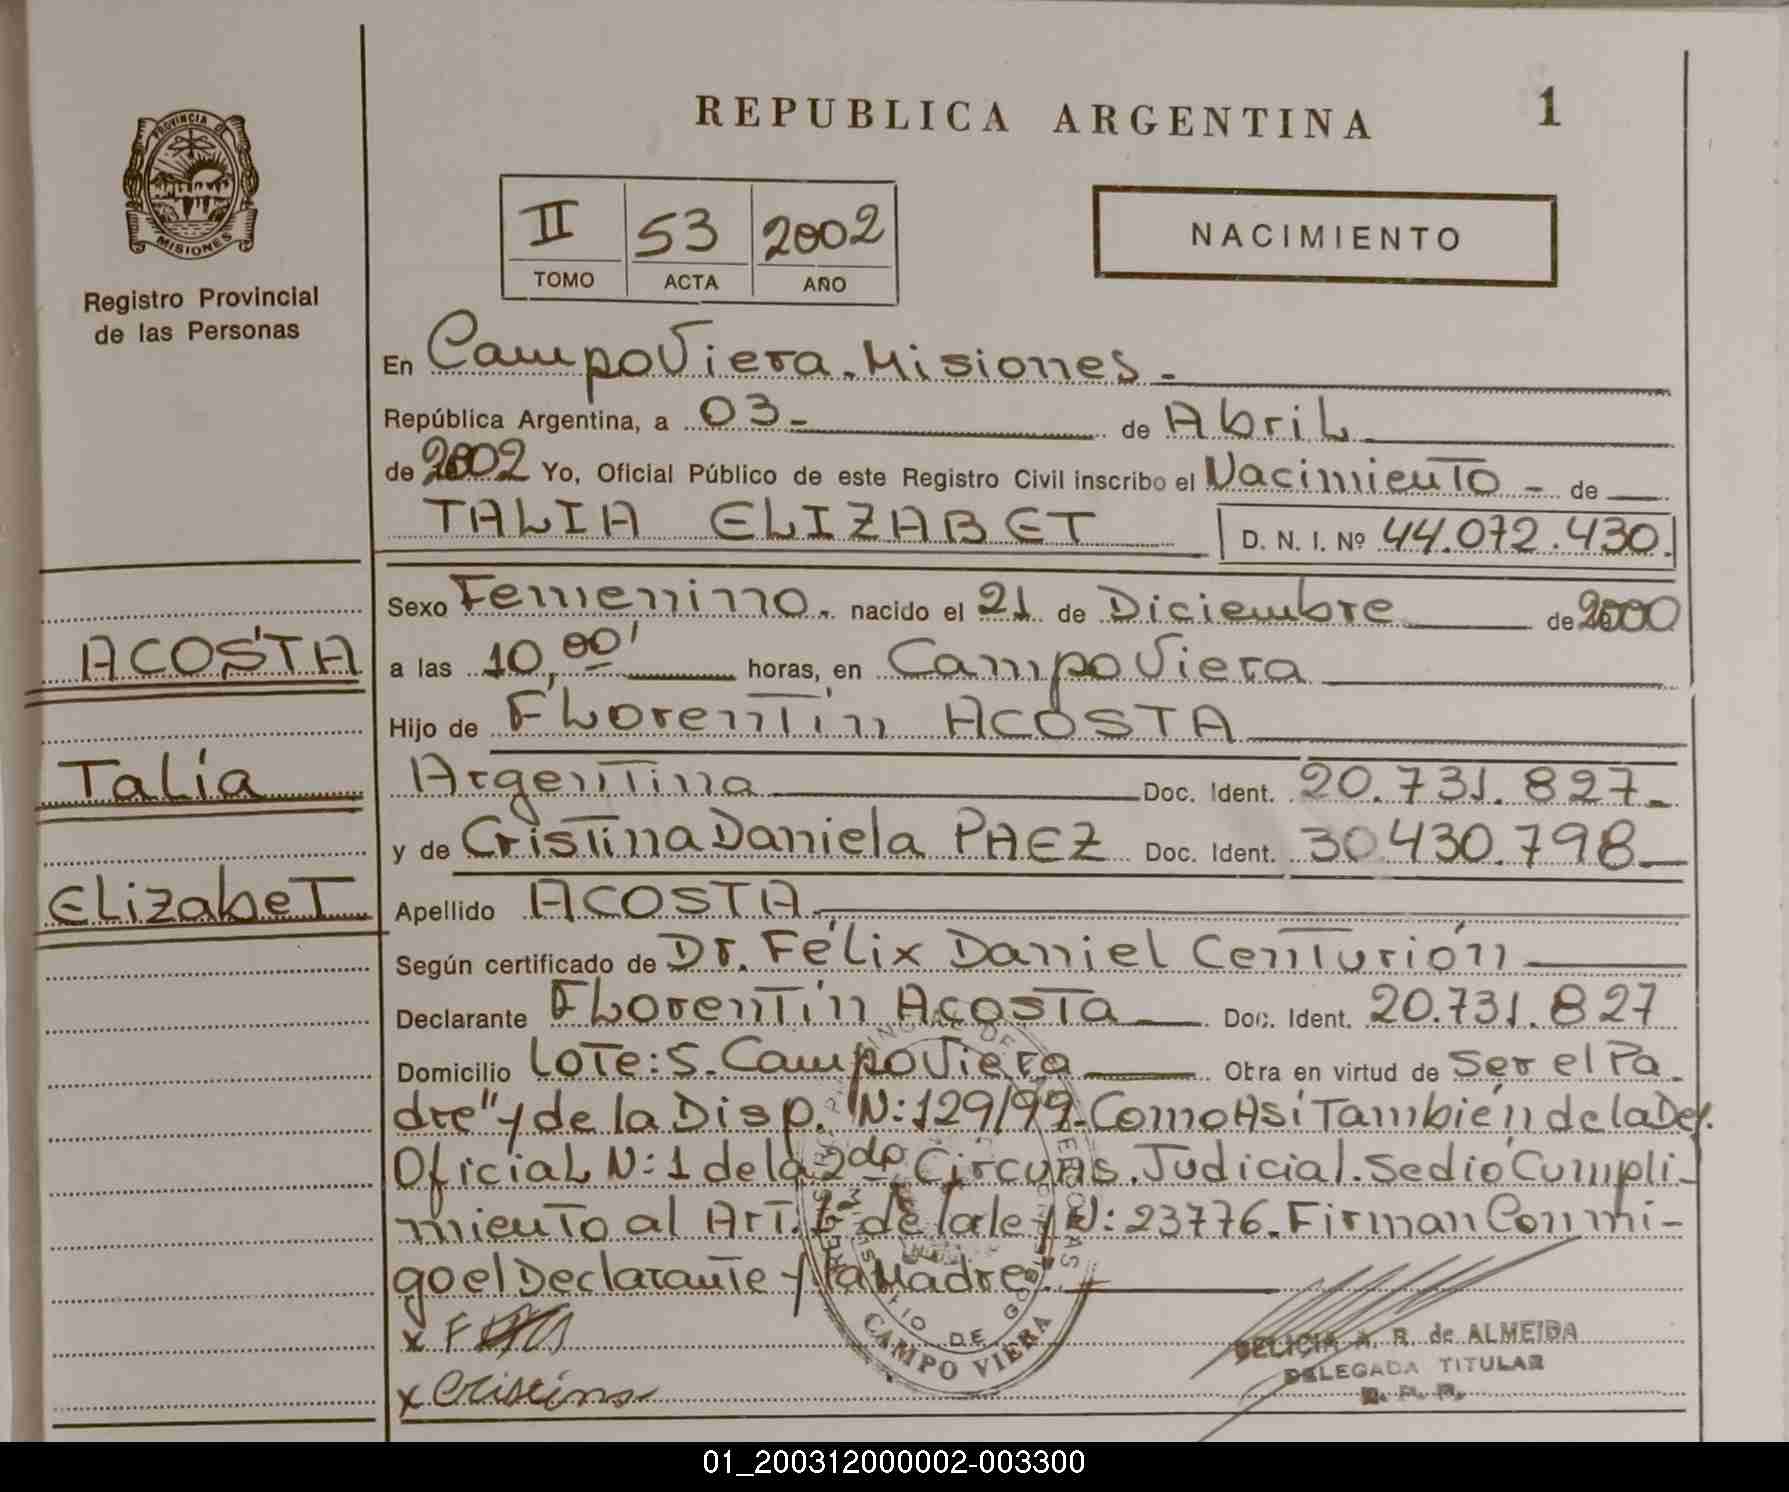 REPUBLICA ARGENTINA
1
PROVINCIA DE
MISIONES
Registro Provincial
de las Personas
II 53 2002
TOMO ACTA AÑO
NACIMIENTO
En Campo Viera. Misiones.-
República Argentina, a 03- de Abril
de 2002 Yo, Oficial Público de este Registro Civil inscribo el Nacimiento - de
TALIA ELIZABET D. N. I. Nº 44.072.430.
Sexo Femenino. nacido el 21 de Diciembre de 2000
a las 10,00' horas, en Campo Viera
Hijo de Florentín ACOSTA
Argentina Doc. Ident. 20.731.827-
y de Cristina Daniela PAEZ Doc. Ident. 30.430.798-
Apellido ACOSTA
Según certificado de Dr. Félix Daniel Centurión
Declarante Florentín Acosta Doc. Ident. 20.731.827
Domicilio Lote: S. Campo Viera Obra en virtud de Ser el Pa-
dre" y de la Disp. N: 129/99. Como Así También de la Def.
Oficial N: 1 de la 2do Circuns. Judicial. Se dió Cumpli-
miento al Art. de la ley N: 23776. Firman Conmi-
go el Declarante y la Madre.
ACOSTA
Talía
Elizabet
x
x Cristina
CAMPO VIERA
DELICIA A. R. de ALMEIDA
DELEGADA TITULAR
R. P. P.
01_200312000002-003300